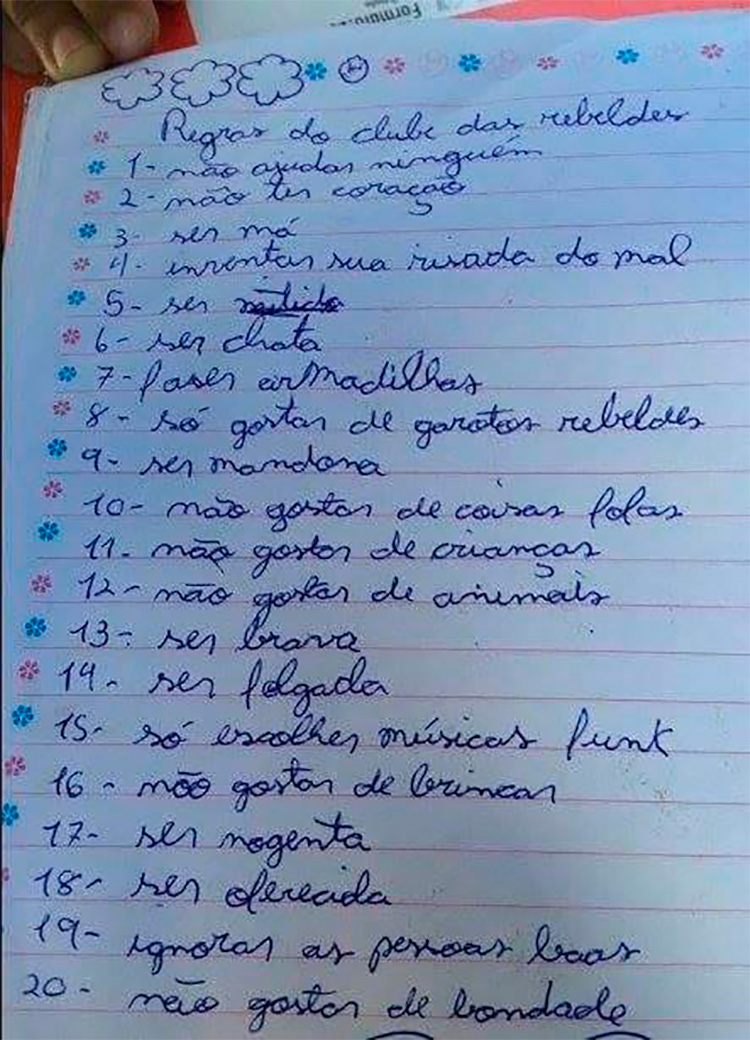 Formulá
Regras do clube das rebeldes
1- não ajudar ninguém
2- não ter coração
3- ser má
4- inventar sua risada do mal
5- ser
6- ser chata
7- faser armadilhas
8- só gostar de garotos rebeldes
9- ser mandona
10- não gostar de coisas fofas
11- não gostar de crianças
12- não gostar de animais
13- ser brava
14- ser folgada
15- só escolher músicas funk
16- não gostar de brincar
17- ser nogenta
18- ser oferecida
19- ignorar as pessoas boas
20- não gostar de bondade